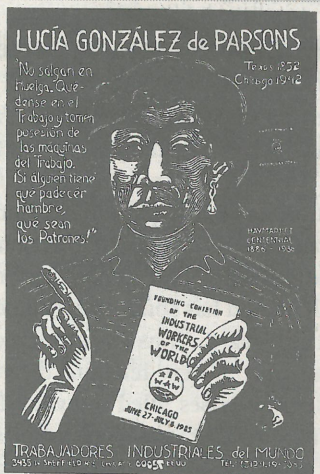 LUCÍA GONZÁLEZ de PARSONS
Texas 1852
Chicago 1942
"No salgan en
Huelga. Que-
dense en el
Trabajo y tomen
posesión de
las máquinas
del Trabajo.
¡Si alguien tiene
que padecer
hambre,
que sean
los Patrones!"
HAYMARKET
CENTENNIAL
1886 - 1986
FOUNDING CONVETION
OF THE
INDUSTRIAL
WORKERS
OF THE
WORLD
IWW
CHICAGO
JUNE 27-JULY 8, 1905
TRABAJADORES INDUSTRIALES del MUNDO
3435 N. SHEFFIELD
CHICAGO
60657 EEUU